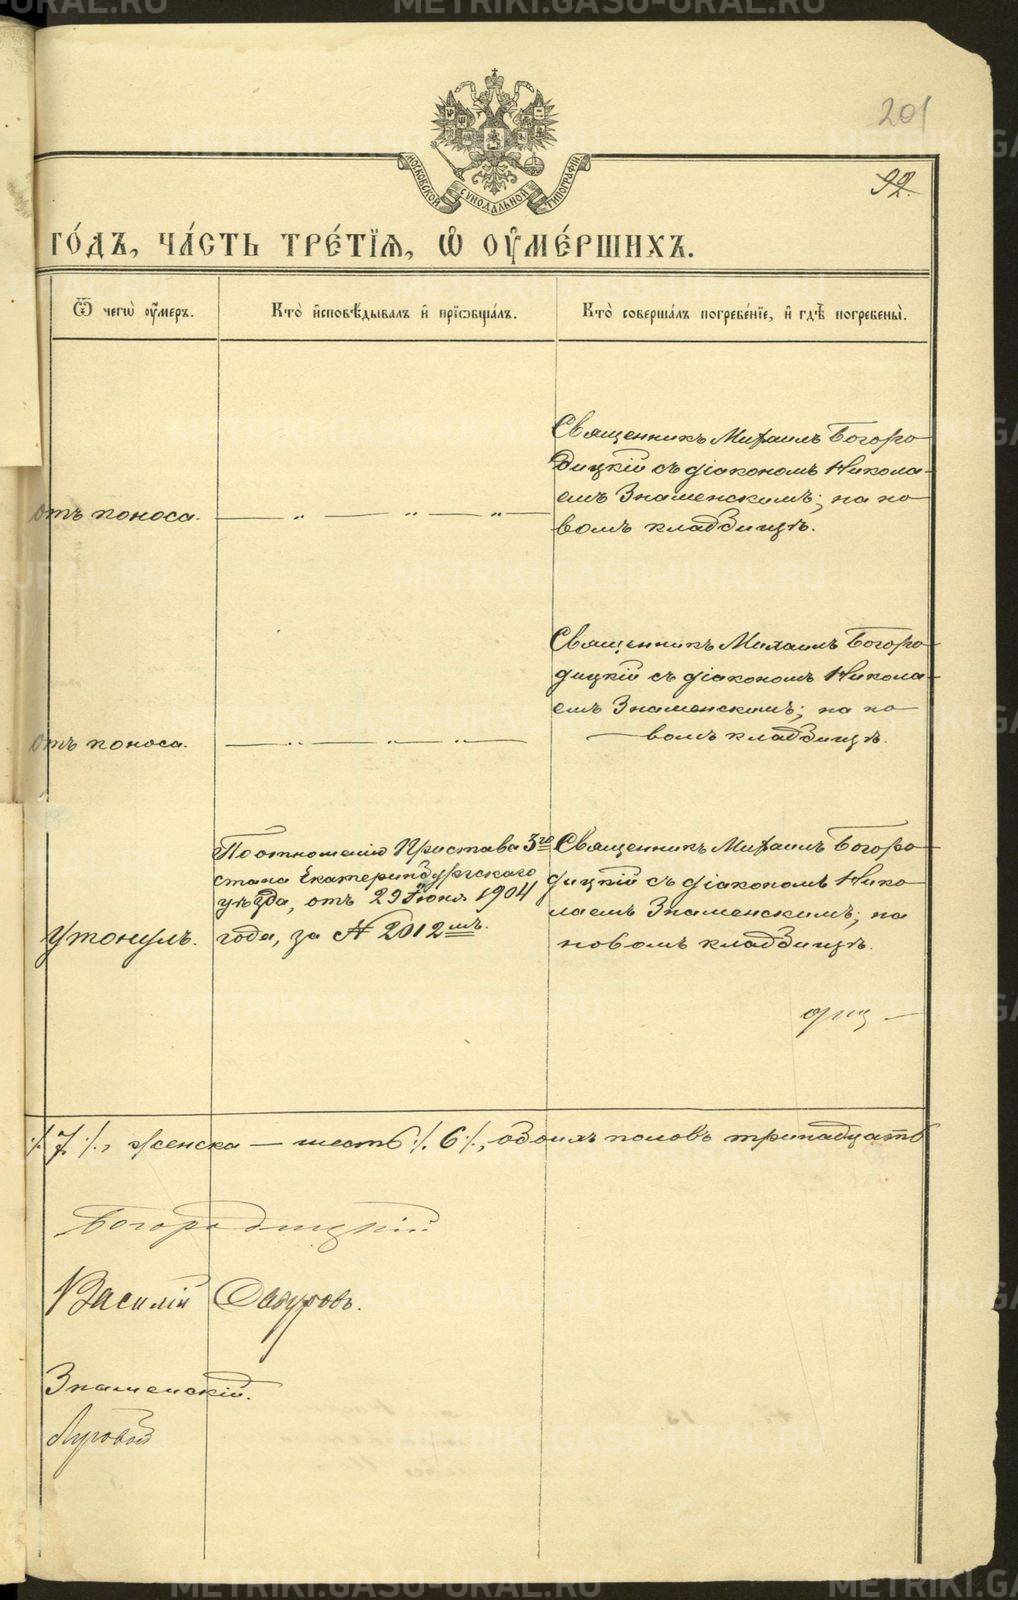 201
92.
МОСКОВСКОЙ СѴНОДАЛЬНОЙ ТИПОГРАФІИ
ГО́ДЪ, ЧА́СТЬ ТРЕ́ТІѦ, Ѡ҆ ОУ҆МЕ́РШИХЪ.
Ѿ чегѡ̀ оу҆́меръ.
Кто̀ и҆сповѣ́дывалъ и҆ прїѻбща́лъ.
Кто̀ соверша́лъ погребе́нїе, и҆ гдѣ̀ погребены̀.
отъ поноса.
Священникъ Михаилъ Богоро-
дицкій съ діакономъ Никола-
емъ Знаменскимъ; на но-
вомъ кладбищѣ.
отъ поноса.
Священникъ Михаилъ Богоро-
дицкій съ діакономъ Никола-
емъ Знаменскимъ; на но-
вомъ кладбищѣ.
утонулъ.
По отношенію Пристава 3го
стана Екатеринбургскаго
уѣзда, отъ 29 Іюня 1904
года, за № 2012мъ.
Священникъ Михаилъ Богоро-
дицкій съ діакономъ Нико-
лаемъ Знаменскимъ; на
новомъ кладбищѣ.
·/. 7 ·/., женска — шесть ·/. 6 ·/., обоихъ половъ тринадцать
Богородицкій
Василій
Знаменскій.
Луговой
METRIKI.GASO-URAL.RU